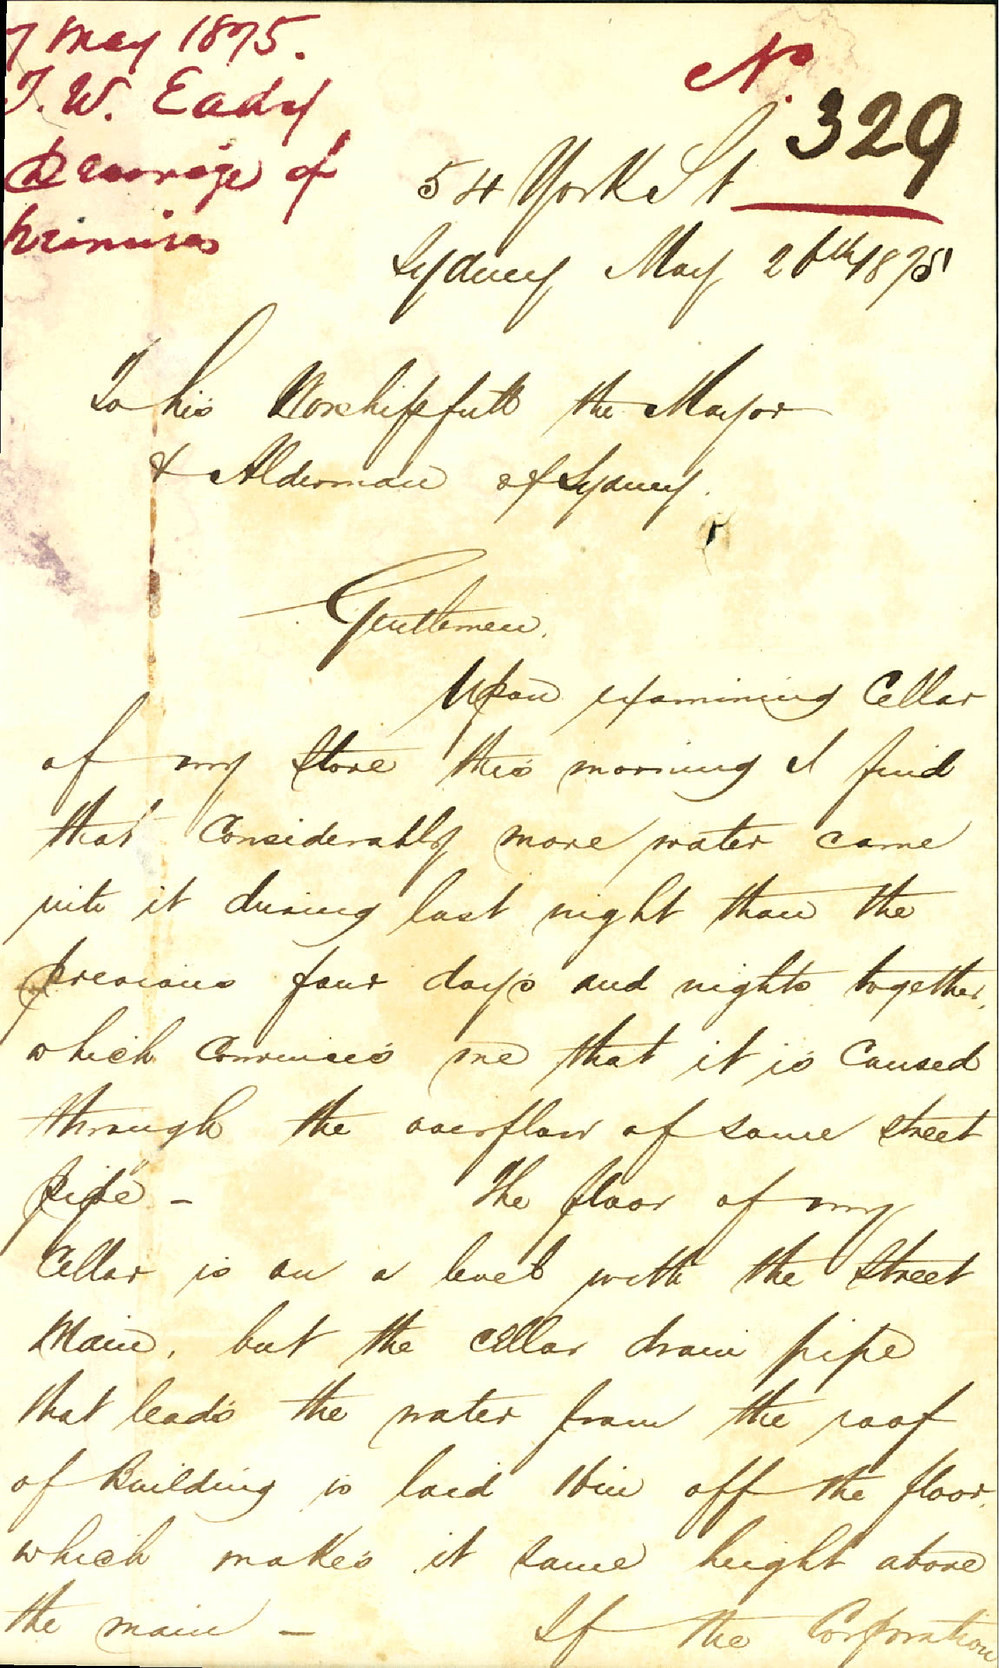 7 May 1875.
T. W. Eady
Drainage of
premises
No.
329
54 York St
Sydney May 26th 1875
To his Worshipfull the Mayor
& Alderman of Sydney.
Gentlemen.
Upon examining Cellar
of my Store this morning I find
that Considerably more water came
into it during last night than the
previous four days and nights together.
which Convinces me that it is Caused
through the overflow of some street
pipe – The floor of my
Cellar is on a level with the Street
Main, but the cellar drain pipe
that leads the water from the roof
of Building is laid in off the floor.
which makes it same height above
the main – If the Corporation